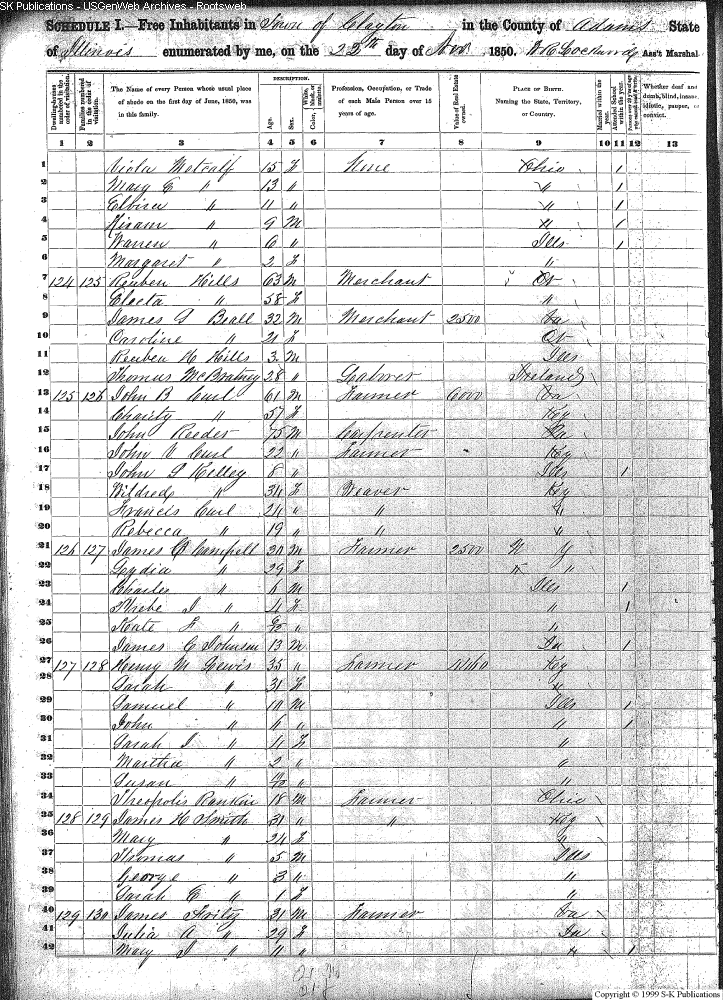 SK Publications - USGenWeb Archives - Rootsweb
SCHEDULE I.—Free Inhabitants in Town of Clayton in the County of Adams State
of Illinois enumerated by me, on the 22th day of Nov 1850. Ass't Marshal
DESCRIPTION.
Dwelling-houses numbered in the order of visitation. Families numbered in the order of visitation. The Name of every Person whose usual place of abode on the first day of June, 1850, was in this family. Age. Sex. Color, White, black, or mulatto. Profession, Occupation, or Trade of each Male Person over 15 years of age. Value of Real Estate owned. PLACE OF BIRTH. Naming the State, Territory, or Country. Married within the year. Attended School within the year. Whether deaf and dumb, blind, insane, idiotic, pauper, or convict.
1 2 3 4 5 6 7 8 9 10 11 12 13
1 Viola Metcalf 15 f None Ohio 1
2 Mary E " 13 " " 1
3 Elvira " 11 " " 1
4 Hiram " 9 M " 1
5 Warren " 6 " Ills 1
6 Margaret " 2 f "
7 124 125 Reuben Hills 63 M Merchant Ct
8 Electa " 58 f "
9 James G Beall 32 M Merchant 2500 Va
10 Caroline " 21 f Ct
11 Reuben H Hills 3 M Ills
12 Thomas McBratney 28 " Laborer Ireland
13 125 126 John B Curl 61 M Farmer 6000 Va
14 Charity " 57 f Ky
15 John Reeder 75 M Carpenter
16 John V Curl 22 " Farmer Ky
17 John S Kelley 8 " Ills 1
18 Mildred " 34 f Weaver Ky
19 Francis Curl 24 " " "
20 Rebecca " 19 " " "
21 126 127 James Campell 30 M Farmer 2500 N Y
22 Lydia " 29 f " "
23 Charles " 6 M Ills 1
24 Phebe J " 4 f " 1
25 Kate " "
26 James C Johnson 13 M 1
27 127 128 Henry M Lewis 35 " Farmer Ky
28 Sarah " 31 f "
29 Samuel " 10 M Ills 1
30 John " " " 1
31 Sarah J " 4 f "
32 Martha " 2 " "
33 Susan " " "
34 Theopolis Rankin 18 M Farmer Ohio
35 128 129 James H Smith 31 " " Ky
36 Mary " 24 f "
37 Thomas " 5 M Ills
38 George " 3 " "
39 Sarah E " 1 f "
40 129 130 James 31 M Farmer Va
41 Julia A " 29 f
42 Mary J " 11 " " 1
Copyright © 1999 S-K Publications